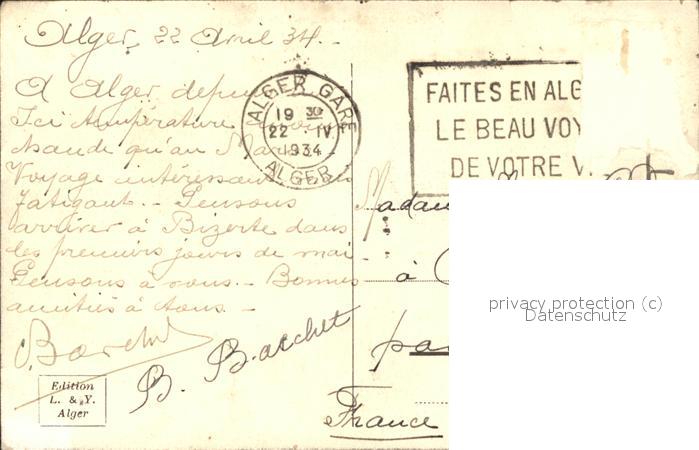 Alger, 22 Avril 34.-
A Alger depuis
Ici température
chaude qu'au Maroc
Voyage intéressant
fatigant. - Pensons
arriver à Bizerte dans
les premiers jours de mai.
Pensons à vous. - Bonnes
amitiés à tous -
B. Barchet
Edition
L. & Y.
Alger
ALGER GARE
19 30
22 - IV
1934
ALGER
FAITES EN ALG
LE BEAU VOY
DE VOTRE V
Madam
à
par
France
privacy protection (c)
Datenschutz